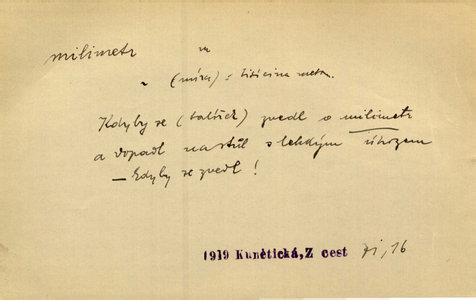 milimetr m
„ (míra) = tisícina metru.
Kdyby se (talířek) zvedl o milimetr
a dopadl na stůl s lehkým úhozem
— kdyby se zvedl!
1919 Kunětická, Z cest 71, 16